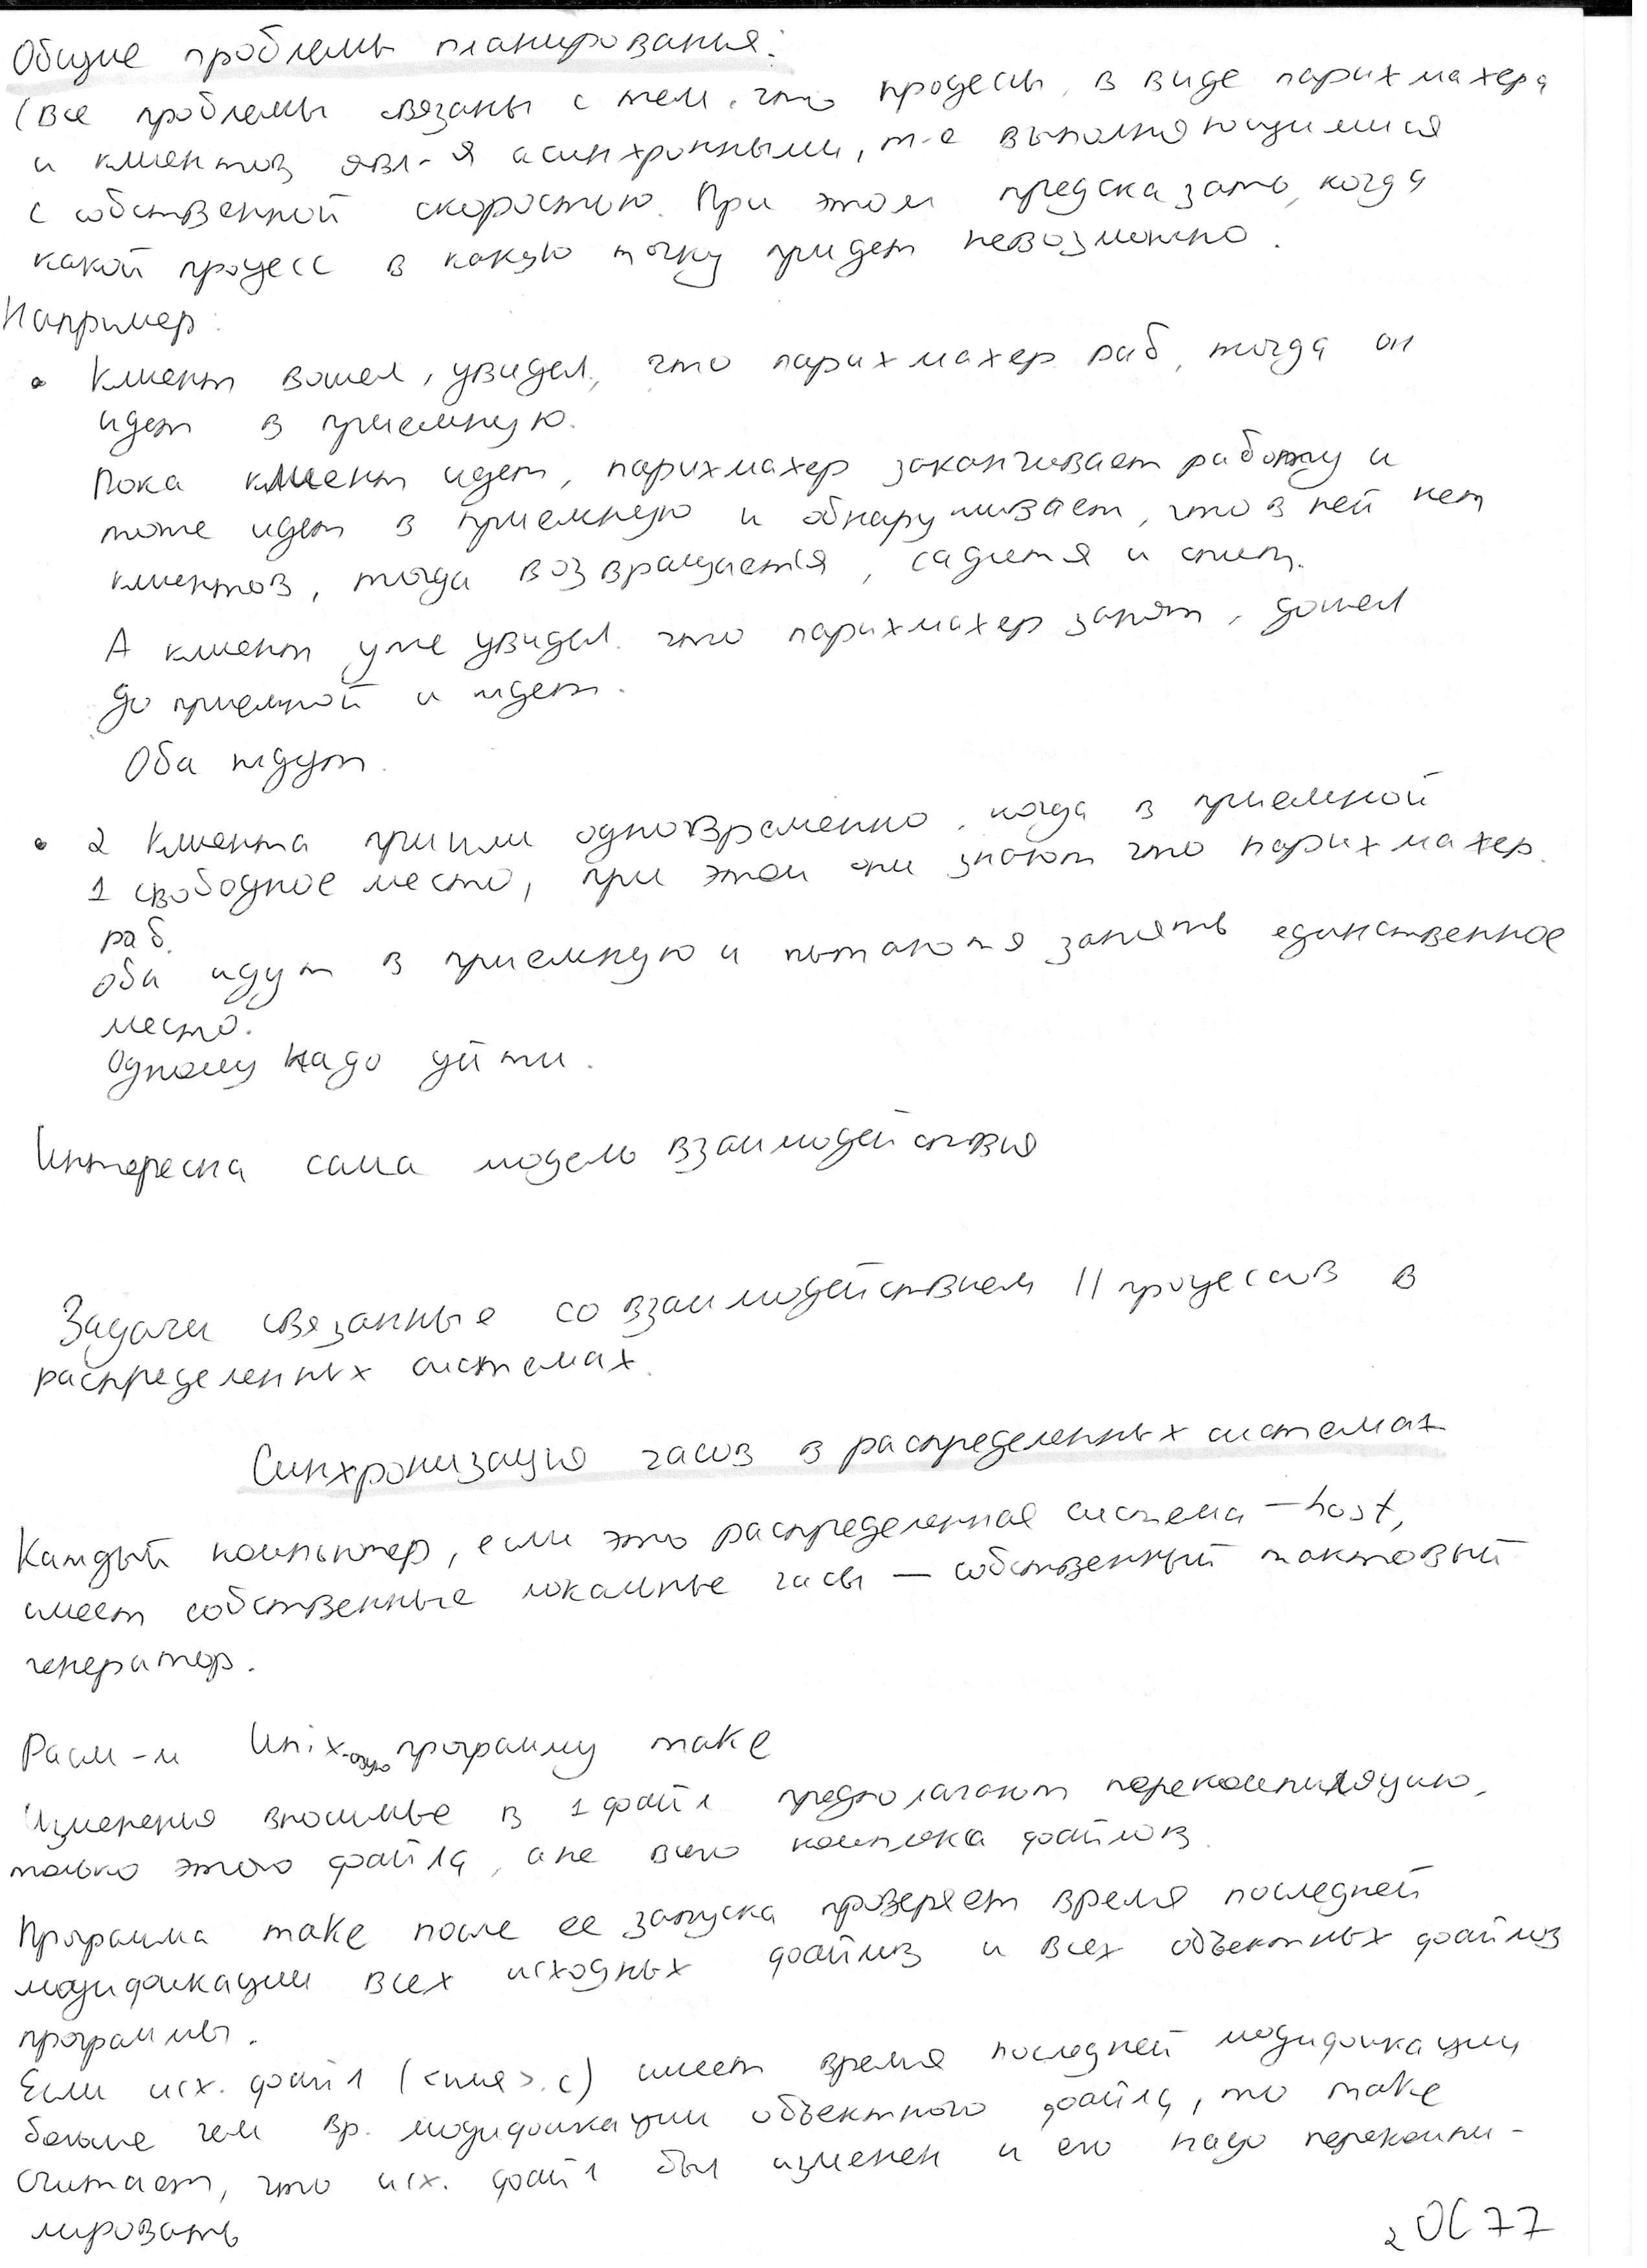 Общие проблемы планирования:
(Все проблемы связаны с тем, что процессы, в виде парихмахера
и клиентов явл-я асинхронными, т-е выполняющимися
с собственной скоростью. При этом предсказать, когда
какой процесс в какую точку придет невозможно.
Например:
• Клиент вошел, увидел, что парихмахер раб, тогда он
идет в приемную.
Пока клиент идет, парихмахер заканчивает работу и
тоже идет в приемную и обнаруживает, что в ней нет
клиентов, тогда возвращается, садится и спит.
А клиент уже увидел что парихмахер занят, дошел
до приемной и ждет.
Оба ждут.
• 2 клиента пришли одновременно, когда в приемной
1 свободное место, при этом они знают что парихмахер
раб.
Оба идут в приемную и пытаются занять единственное
место.
Одному надо уйти.
Интересна сама модель взаимодействия
Задачи связанные со взаимодействием || процессов в
распределенных системах.
Синхронизация часов в распределенных системах
Каждый компьютер, если это распределенная система — host,
имеет собственные локальные часы — собственный тактовый
генератор.
Расм-м Unix-овую программу make
Изменения вносимые в 1 файл предполагают перекомпиляцию,
только этого файла, а не всего комплекса файлов.
Программа make после ее запуска проверяет время последней
модификации всех исходных файлов и всех объектных файлов
программы.
Если исх. файл (<имя>.c) имеет время последней модификации
больше чем вр. модификации объектного файла, то make
считает, что исх. файл был изменен и его надо перекомпи-
лировать
2 ОС 77